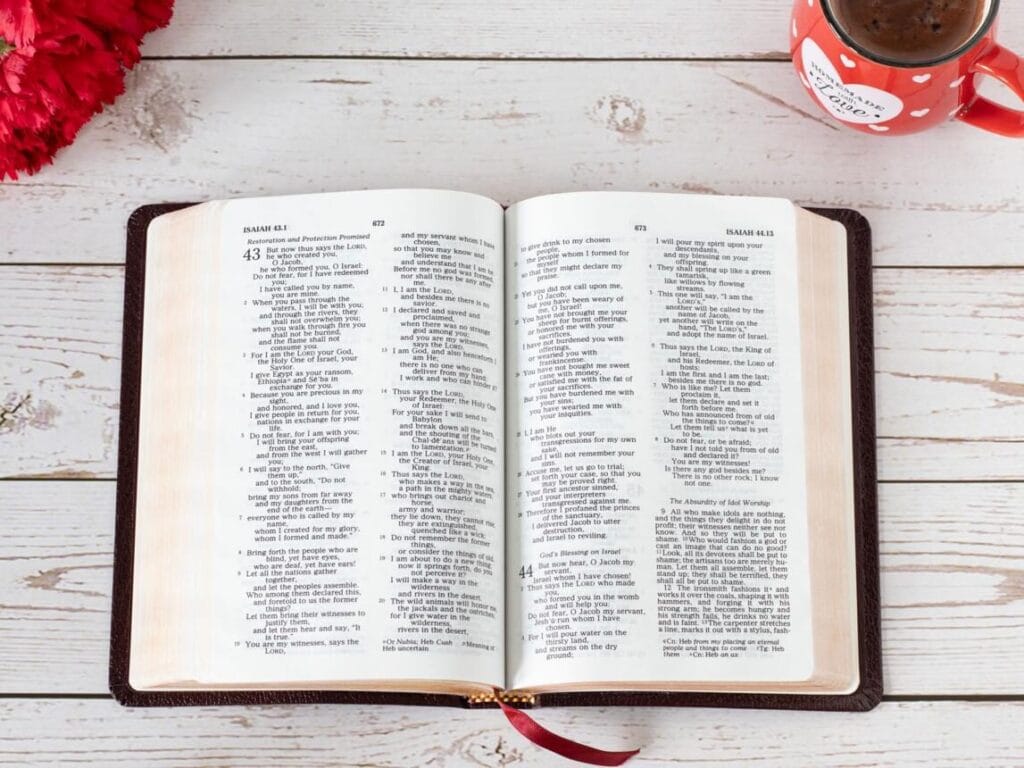 HOMEMADE
with
Love
ISAIAH 43.1
672
Restoration and Protection Promised
43 But now thus says the LORD,
he who created you,
O Jacob,
he who formed you, O Israel:
Do not fear, for I have redeemed
you;
I have called you by name,
you are mine.
2 When you pass through the
waters, I will be with you;
and through the rivers, they
shall not overwhelm you;
when you walk through fire you
shall not be burned,
and the flame shall not
consume you.
3 For I am the LORD your God,
the Holy One of Israel, your
Savior.
I give Egypt as your ransom,
Ethiopia and Se'ba in
exchange for you.
4 Because you are precious in my
sight,
and honored, and I love you,
I give people in return for you,
nations in exchange for your
life.
5 Do not fear, for I am with you;
I will bring your offspring
from the east,
and from the west I will gather
you;
6 I will say to the north, "Give
them up,"
and to the south, "Do not
withhold;
bring my sons from far away
and my daughters from the
end of the earth—
7 everyone who is called by my
name,
whom I created for my glory,
whom I formed and made."
8 Bring forth the people who are
blind, yet have eyes,
who are deaf, yet have ears!
9 Let all the nations gather
together,
and let the peoples assemble.
Who among them declared this,
and foretold to us the former
things?
Let them bring their witnesses to
justify them,
and let them hear and say, "It
is true."
10 You are my witnesses, says the
LORD,
and my servant whom I have
chosen,
so that you may know and
believe me
and understand that I am he.
Before me no god was formed,
nor shall there be any after
me.
11 I, I am the LORD,
and besides me there is no
savior.
12 I declared and saved and
proclaimed,
when there was no strange
god among you;
and you are my witnesses,
says the LORD.
13 I am God, and also henceforth I
am He;
there is no one who can
deliver from my hand;
I work and who can hinder it?
14 Thus says the LORD,
your Redeemer, the Holy One
of Israel:
For your sake I will send to
Babylon
and break down all the bars,
and the shouting of the
Chal·dē'ans will be turned
to lamentation.
15 I am the LORD, your Holy One,
the Creator of Israel, your
King.
16 Thus says the LORD,
who makes a way in the sea,
a path in the mighty waters,
17 who brings out chariot and
horse,
army and warrior;
they lie down, they cannot rise,
they are extinguished,
quenched like a wick:
18 Do not remember the former
things,
or consider the things of old.
19 I am about to do a new thing;
now it springs forth, do you
not perceive it?
I will make a way in the
wilderness
and rivers in the desert.
20 The wild animals will honor me,
the jackals and the ostriches;
for I give water in the
wilderness,
rivers in the desert,
Or Nubia; Heb Cush Meaning of
Heb uncertain
673
ISAIAH 44.13
to give drink to my chosen
people,
the people whom I formed for
myself
so that they might declare my
praise.
Yet you did not call upon me,
O Jacob;
but you have been weary of
me, O Israel!
You have not brought me your
sheep for burnt offerings,
or honored me with your
sacrifices.
I have not burdened you with
offerings,
or wearied you with
frankincense.
You have not bought me sweet
cane with money,
or satisfied me with the fat of
your sacrifices.
But you have burdened me with
your sins;
you have wearied me with
your iniquities.
I, I am He
who blots out your
transgressions for my own
sake,
and I will not remember your
sins.
Accuse me, let us go to trial;
set forth your case, so that you
may be proved right.
Your first ancestor sinned,
and your interpreters
transgressed against me.
Therefore I profaned the princes
of the sanctuary,
I delivered Jacob to utter
destruction,
and Israel to reviling.
God's Blessing on Israel
44 But now hear, O Jacob my
servant,
Israel whom I have chosen!
Thus says the LORD who made
you,
who formed you in the womb
and will help you:
Do not fear, O Jacob my servant,
Jesh'ū·run whom I have
chosen.
For I will pour water on the
thirsty land,
and streams on the dry
ground;
I will pour my spirit upon your
descendants,
and my blessing on your
offspring.
4 They shall spring up like a green
tamarisk,
like willows by flowing
streams.
5 This one will say, "I am the
LORD's,"
another will be called by the
name of Jacob,
yet another will write on the
hand, "The LORD's,"
and adopt the name of Israel.
6 Thus says the LORD, the King of
Israel,
and his Redeemer, the LORD of
hosts:
I am the first and I am the last;
besides me there is no god.
7 Who is like me? Let them
proclaim it,
let them declare and set it
forth before me.
Who has announced from of old
the things to come?
Let them tell us what is yet
to be.
8 Do not fear, or be afraid;
have I not told you from of old
and declared it?
You are my witnesses!
Is there any god besides me?
There is no other rock; I know
not one.
The Absurdity of Idol Worship
9 All who make idols are nothing,
and the things they delight in do not
profit; their witnesses neither see nor
know. And so they will be put to
shame. 10 Who would fashion a god or
cast an image that can do no good?
11 Look, all its devotees shall be put to
shame; the artisans too are merely hu-
man. Let them all assemble, let them
stand up; they shall be terrified, they
shall all be put to shame.
12 The ironsmith fashions it and
works it over the coals, shaping it with
hammers, and forging it with his
strong arm; he becomes hungry and
his strength fails, he drinks no water
and is faint. 13 The carpenter stretches
a line, marks it out with a stylus, fash-
Cn: Heb from my placing an eternal
people and things to come Tg: Heb
them Cn: Heb an ax